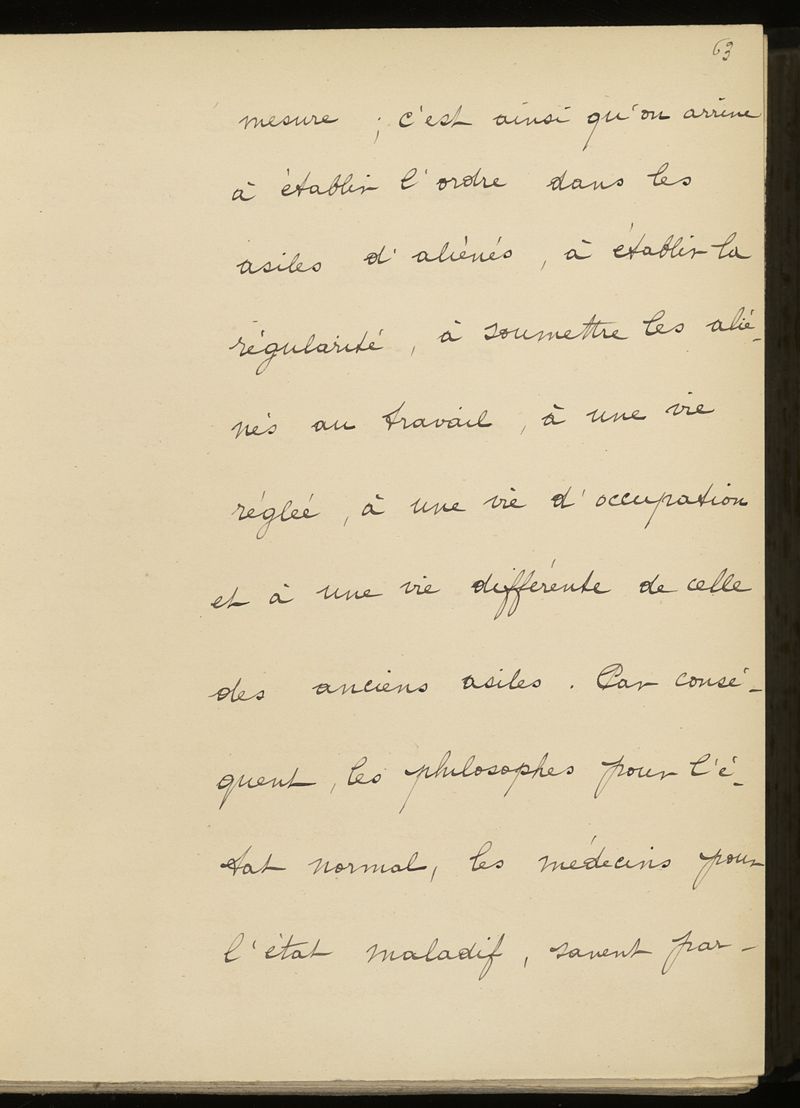 63
mesure ; c'est ainsi qu'on arrive
à établir l'ordre dans les
asiles d'aliénés, à établir la
régularité, à soumettre les alié-
nés au travail, à une vie
régleé, à une vie d'occupation
et à une vie différente de celle
des anciens asiles. Par consé-
quent, les philosophes pour l'é-
tat normal, les médecins pour
l'état maladif, savent par-